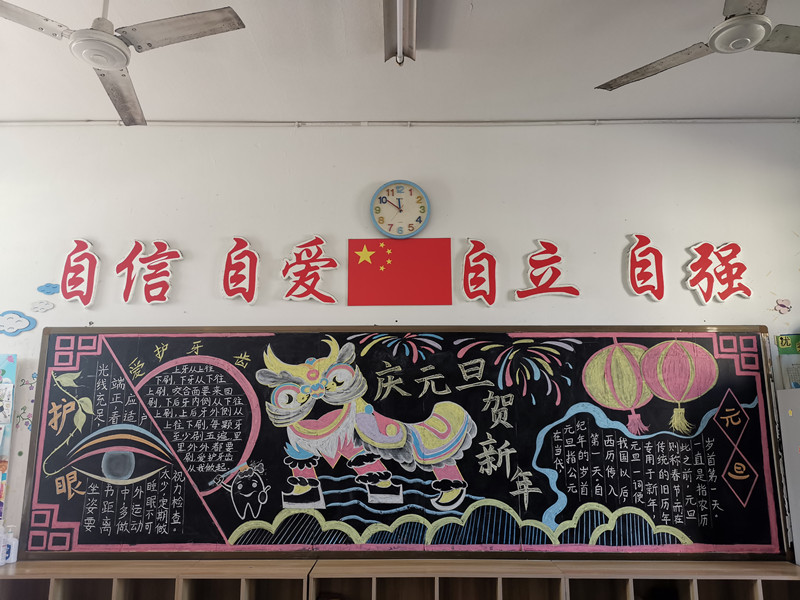 自信 自爱 自立 自强
12
1
2
3
4
5
6
7
8
9
10
11
爱护牙齿
上牙从上往
下刷,下牙从下往
上刷,咬合面要来回
刷,下后牙内侧从下往
上刷,上后牙外侧从
上往下刷,每颗牙
至少刷五遍,里
里外外都要
刷,爱护牙齿
从我做起。
护眼
光线充足
坐姿要
端正看
书距离
应适
中多做
户
外运动
睡眠不可
太少定期做
视力检查。
庆元旦
贺新年
在当代,
元旦指公元
纪年的岁首
第一天。自
西历传入
我国以后,
元旦一词便
专用于新年,
传统的旧历年
则称春节。而在
此之前,元旦
一直是指农历
岁首第一天。
元旦
优